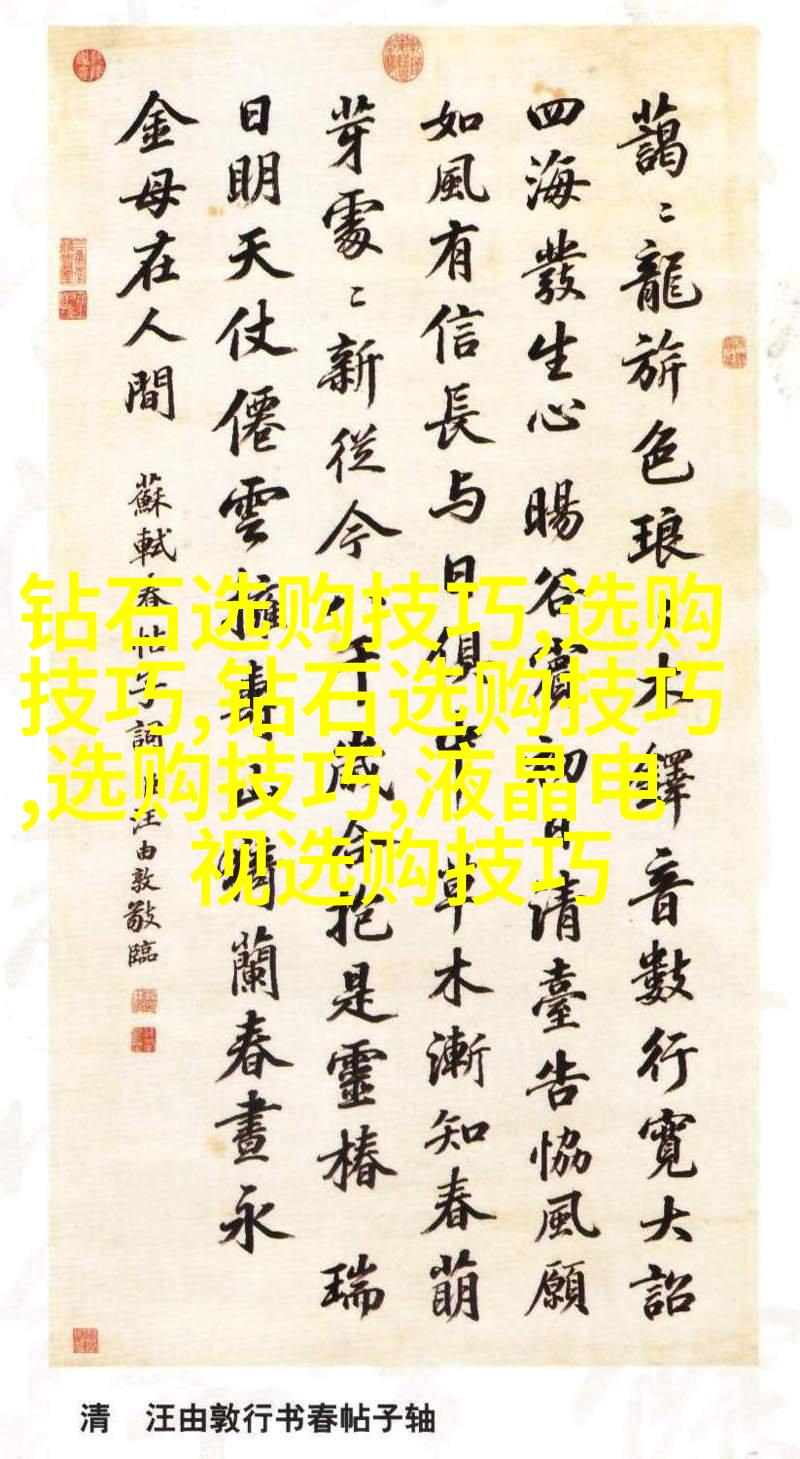 藹〻龍旂色琅〻木鐸音數行寬大詔
四海發生心 暘谷賓初日清臺告協風願
如風有信長与日俱中草木漸知春萌
芽處〻新從今八千歲合抱是靈椿 瑞
日明天仗僊雲擁壽山猗蘭春晝永
金母在人間
蘇軾春帖子詞 臣汪由敦敬臨
钻石选购技巧,选购
技巧,钻石选购技巧
,选购技巧,液晶电
视选购技巧
清 汪由敦行书春帖子轴